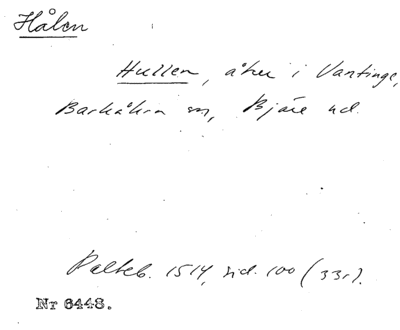 Hålen
Hullen, åker i Vantinge,
Barkåkra sn, Bjäre hd.
Palteb. 1514, sid. 100 (33r).
Nr 6448.